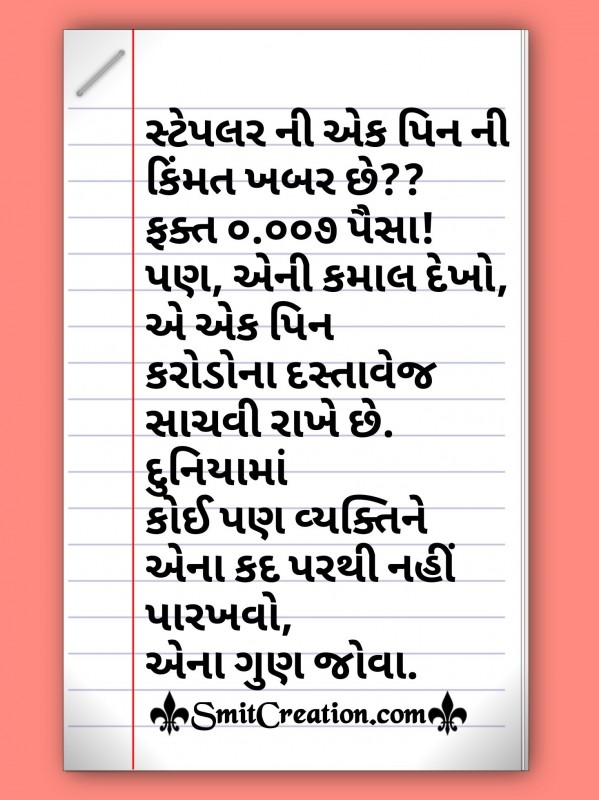 સ્ટેપલર ની એક પિન ની
કિંમત ખબર છે??
ફક્ત ૦.૦૦૭ પૈસા!
પણ, એની કમાલ દેખો,
એ એક પિન
કરોડોના દસ્તાવેજ
સાચવી રાખે છે.
દુનિયામાં
કોઈ પણ વ્યક્તિને
એના કદ પરથી નહીં
પારખવો,
એના ગુણ જોવા.
SmitCreation.com